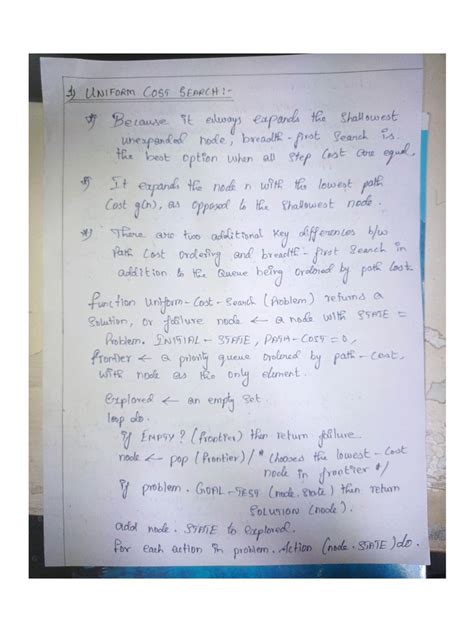 1) UNIFORM COST SEARCH:-
*) Because it always expands the shallowest
unexpanded node, breadth-first search is
the best option when all step cost are equal.
*) It expands the node n with the lowest path
cost g(n), as opposed to the shallowest node.
*) There are two additional key differences b/w
Path cost ordering and breadth-first search in
addition to the queue being ordered by path cost.
function Uniform-Cost-Search (Problem) returns a
Solution, or failure node ← a node with STATE =
Problem. INITIAL-STATE, PATH-COST=0,
frontier ← a priority queue ordered by path-cost,
with node as the only element.
Explored ← an empty set.
loop do.
if EMPTY? (frontier) then return failure
node ← pop (frontier) /* chooses the lowest-cost
node in frontier */
if problem. GOAL-TEST (node.State) then return
SOLUTION (node).
add node.STATE to explored.
for each action in problem. Action (node.STATE) do.